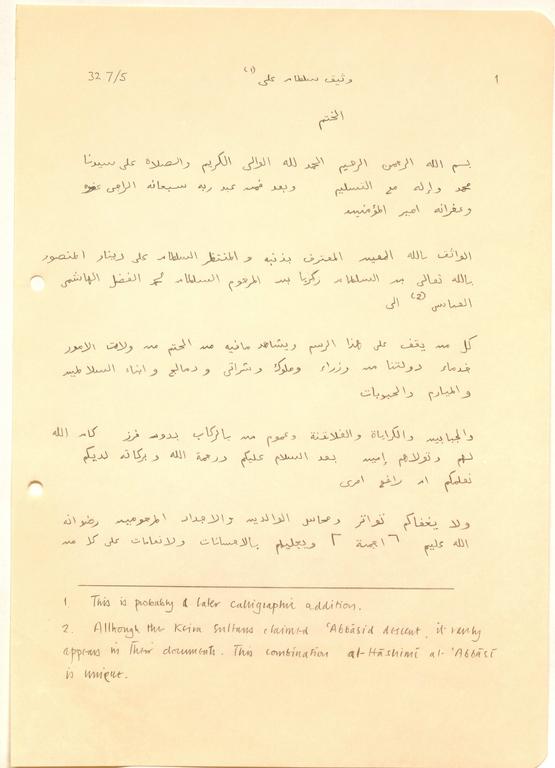 32 7/5
وثيقة سلطان على (1)
1
الختم
بسم الله الرحمن الرحيم الحمد لله الوالى الكريم والصلاة على سيدنا
محمد واله مع التسليم وبعد فمن عبد ربه سبحانه الراجى عفوه
وغفرانه امير المؤمنين
الواثق بالله المعين المعترف بذنبه والمنتظر السلطان على دينار المنصور
بالله تعالى بن السلطان زكريا بن المرحوم السلطان محمد الفضل الهاشمى
العباسى (2) الى
كل من يقف على هذا الرسم ويشاهد مافيه من الختم من ولات الامور
خدماء دولتنا من وزراء وملوك وشراتى ودمالج وابناء السلاطين
والميارم والحبوبات
والجبايين والكراياة والفلاقنة وعموم من بالركاب بدون فرز كان الله
لهم وتولاهم امين بعد السلام عليكم ورحمة الله وبركاته لديكم
نعلمكم ان رافع امرى
ولا يخفاكم تواتر ومحاسن الوالدين والاجداد المرحومين رضوانه
الله عليهم ويجليهم بالاحسانات ولانعامات على كلا من
1 This is probably a later calligraphic addition.
2. Although the Keira Sultans claimed ʿAbbāsid descent, it rarely
appears in their documents. This combination al-Hāshimī al-ʿAbbāsī
is unique.